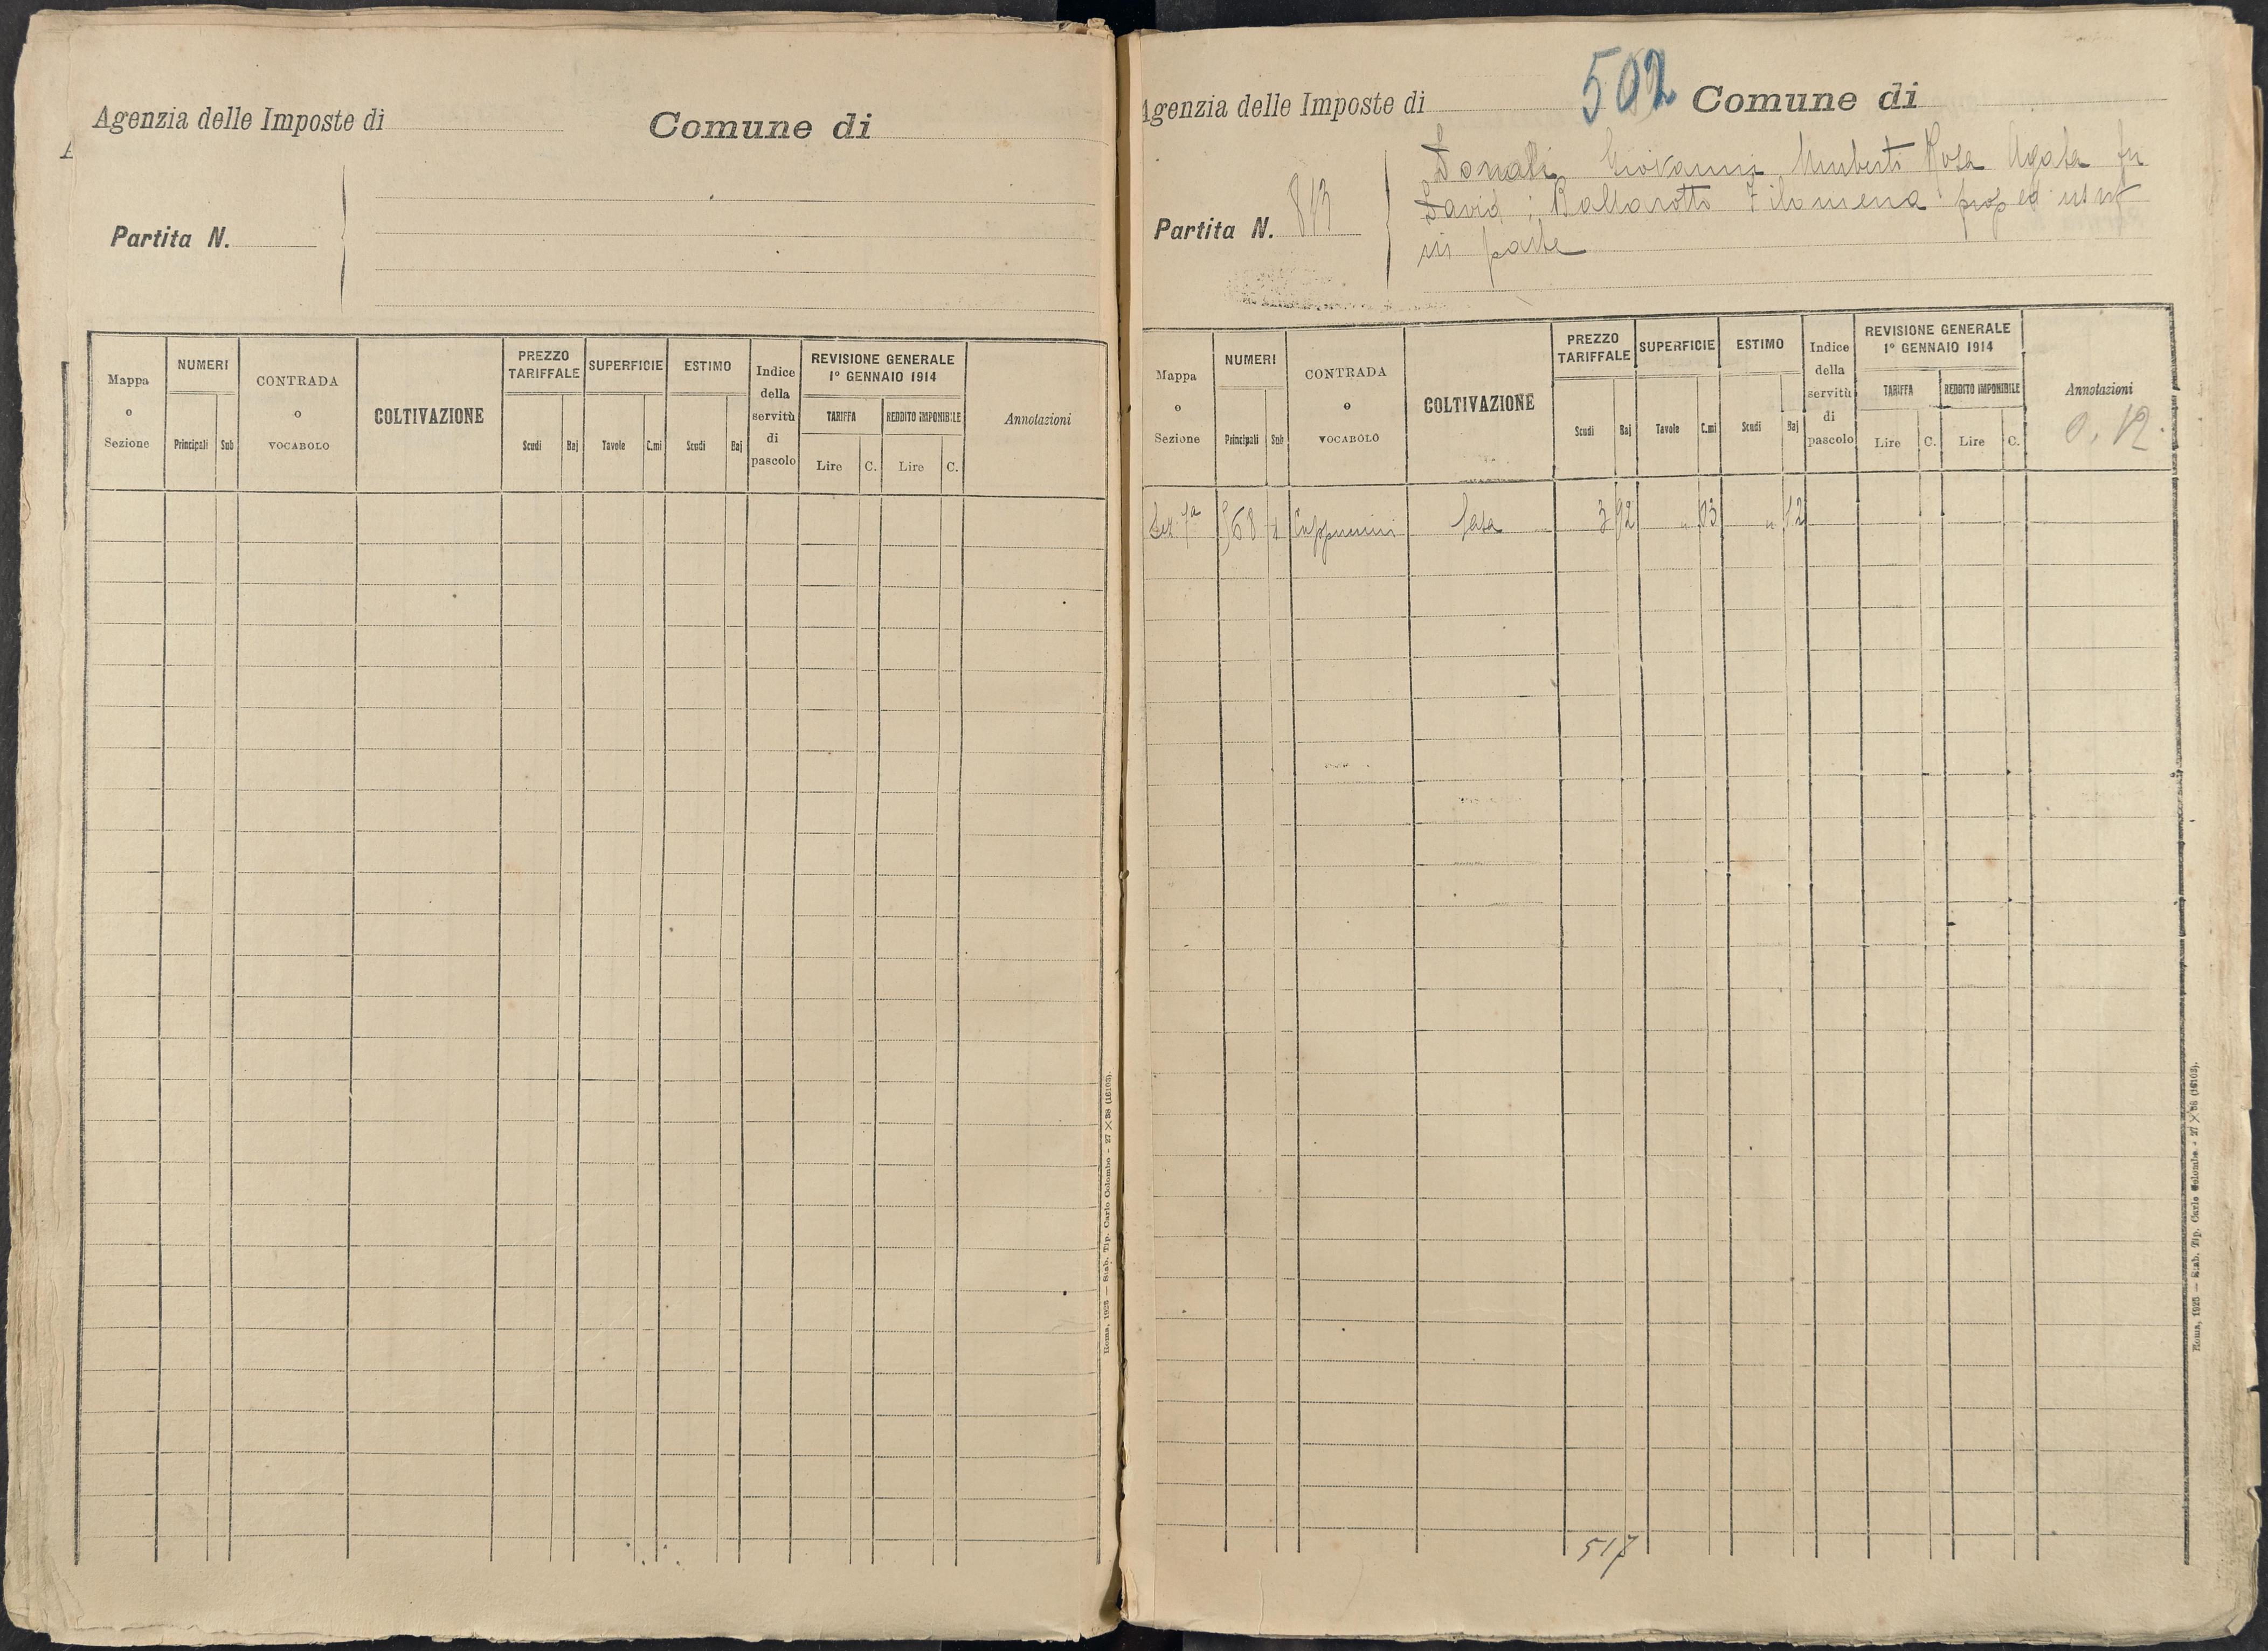 Agenzia delle Imposte di
Comune di
Partita N.
Mappa o Sezione
NUMERI
Principali
Sub
CONTRADA o VOCABOLO
COLTIVAZIONE
PREZZO TARIFFALE
Scudi
Baj
SUPERFICIE
Tavole
C.mi
ESTIMO
Scudi
Baj
Indice della servitù di pascolo
REVISIONE GENERALE
1° GENNAIO 1914
TARIFFA
REDDITO IMPONIBILE
Lire
C.
Lire
C.
Annotazioni
Roma, 1925 — Stab. Tip. Carlo Colombo - 27 × 38 (16103).
502
Agenzia delle Imposte di
Comune di
Partita N. 813
Donati Giovanni Umberto Rosa Agata fu
David; Ballarotto Filomena prop ed usuf
in parte
Mappa o Sezione
NUMERI
Principali
Sub
CONTRADA o VOCABOLO
COLTIVAZIONE
PREZZO TARIFFALE
Scudi
Baj
SUPERFICIE
Tavole
C.mi
ESTIMO
Scudi
Baj
Indice della servitù di pascolo
REVISIONE GENERALE
1° GENNAIO 1914
TARIFFA
REDDITO IMPONIBILE
Lire
C.
Lire
C.
Annotazioni
0.12.
Sez. 1a 568 Cappuccini Casa 3 92 " 03 " 12
517
Roma, 1925 — Stab. Tip. Carlo Colombo - 27 × 38 (16103).